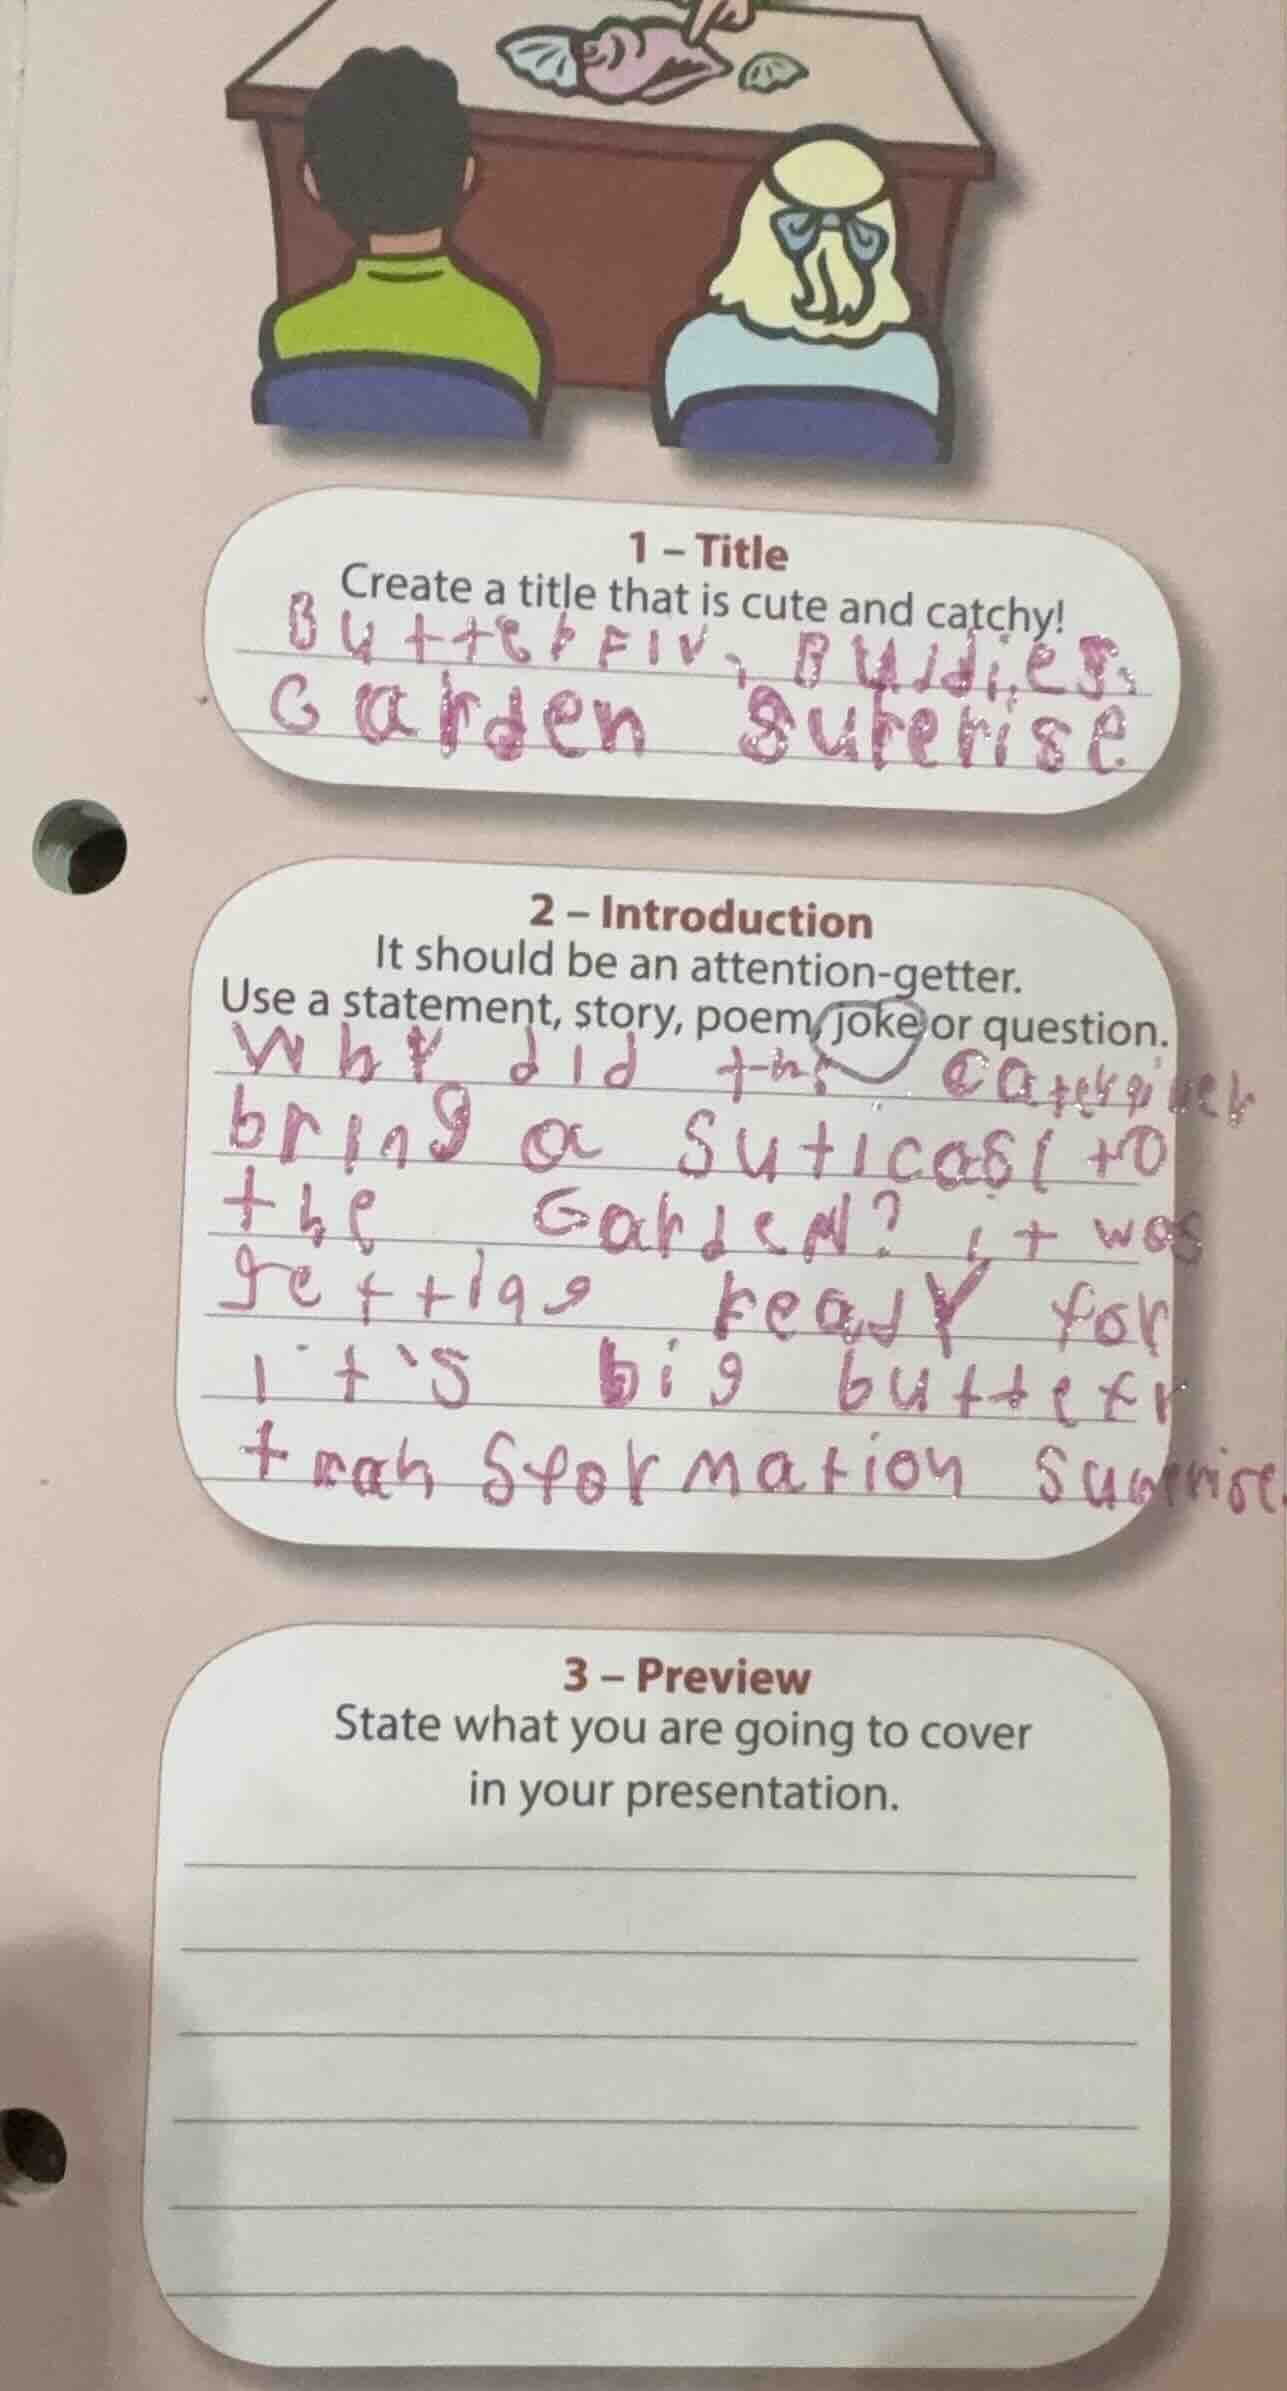 1 – Title
Create a title that is cute and catchy!
Butterfly, Buddies,
Garden Surerise
2 – Introduction
It should be an attention-getter.
Use a statement, story, poem, joke or question.
Why did the
bring a suticase to
the Garden? it was
getting ready for
it's big butterf
transformation
3 – Preview
State what you are going to cover
in your presentation.